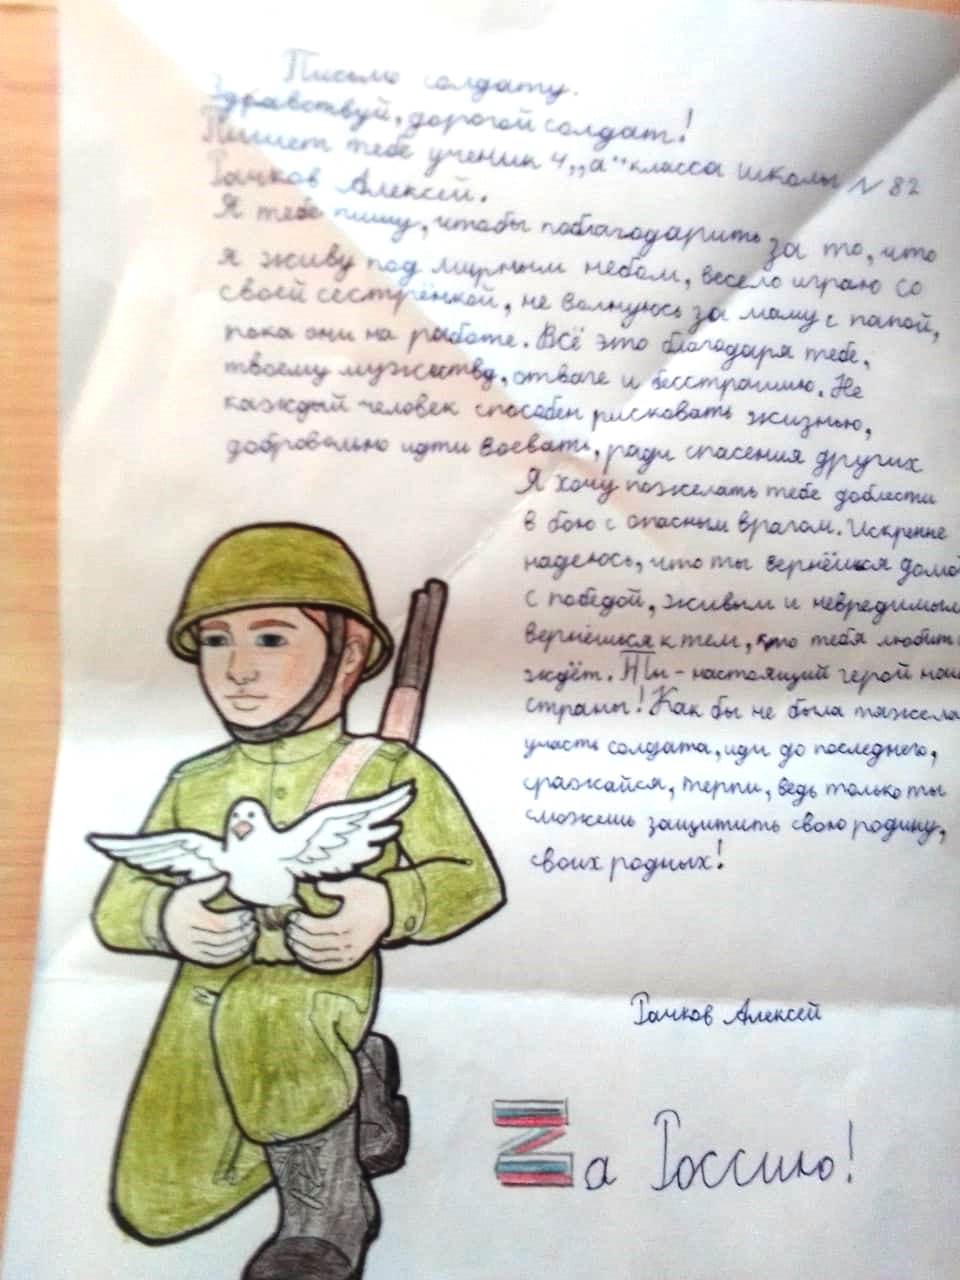 Письмо солдату.
Здравствуй, дорогой солдат!
Пишет тебе ученик 4 „а" класса школы № 82
Рачков Алексей.
Я тебе пишу, чтобы поблагодарить за то, что
я живу под мирным небом, весело играю со
своей сестрёнкой, не волнуюсь за маму с папой,
пока они на работе. Всё это благодаря тебе,
твоему мужеству, отваге и бесстрашию. Не
каждый человек способен рисковать жизнью,
добровольно идти воевать, ради спасения других
Я хочу пожелать тебе доблести
в бою с опасным врагом. Искренне
надеюсь, что ты вернёшься домо
с победой, живым и невредимым
вернёшься к тем, кто тебя любит
ждёт. Ты - настоящий герой наш
страны! Как бы не была тяжела
участь солдата, иди до последнего,
сражайся, терпи, ведь только ты
сможешь защитить свою родину,
своих родных!
Рачков Алексей
Zа Россию!